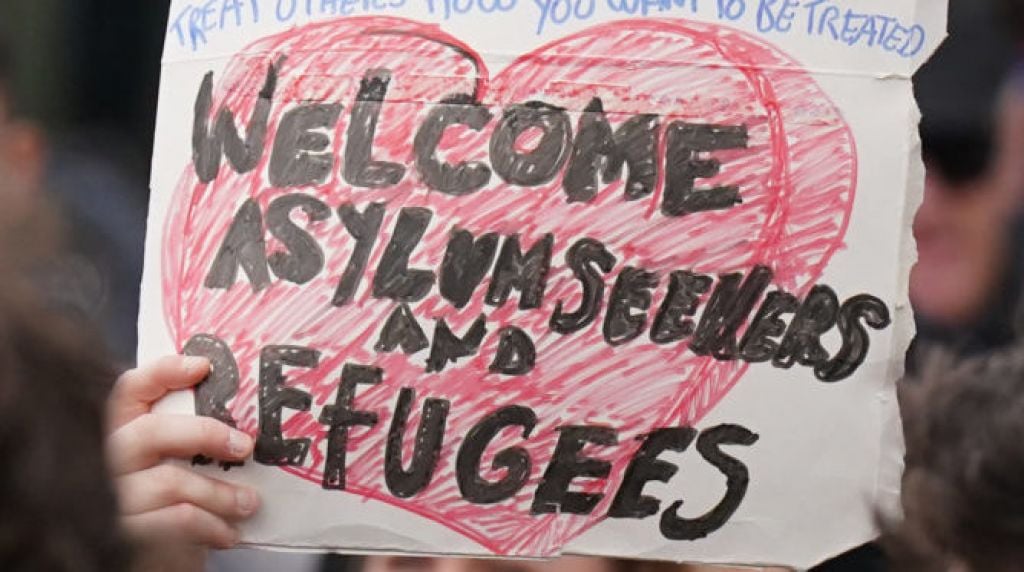 TREAT OTHERS HOW YOU WANT TO BE TREATED
WELCOME
ASYLUM SEEKERS
AND
REFUGEES